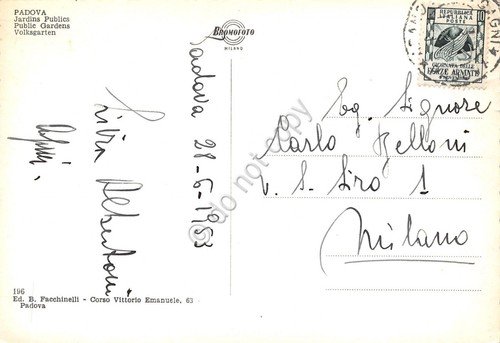 PADOVA
Jardins Publics
Public Gardens
Volksgarten
BROMOFOTO
MILANO
Padova 28-6-1953
Silvia Albertoni
REPUBBLICA
ITALIANA
POSTE
10
GIORNATA DELLE
FORZE ARMATE
Eg. Signore
Carlo Belloni
V. S. Siro 1
Milano
196
Ed. B. Facchinelli - Corso Vittorio Emanuele, 63
Padova
do not copy